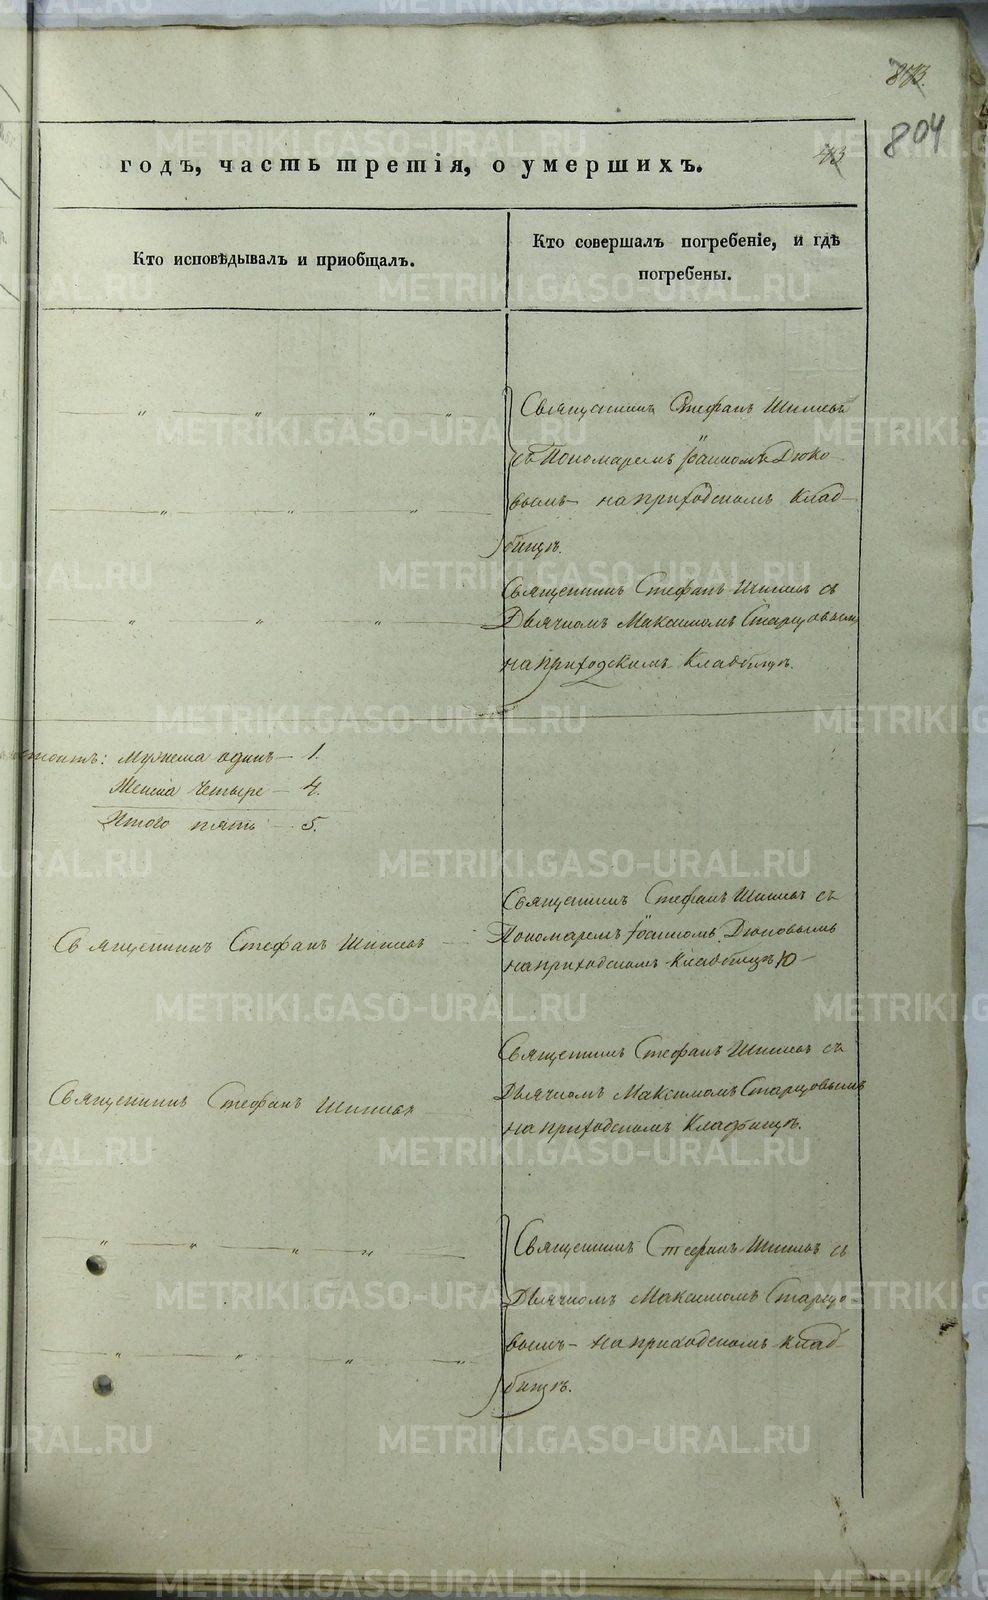 873.
804
годъ, часть третія, о умершихъ.
Кто исповѣдывалъ и приобщалъ.
Кто совершалъ погребеніе, и гдѣ
погребены.
Священникъ Стефанъ Шишевъ
съ Пономаремъ Іоанномъ Дюко-
вымъ на приходскомъ клад-
бищѣ.
Священникъ Стефанъ Шишевъ съ
Дьячкомъ Максимомъ Старцовым
на приходскомъ Кладбищѣ.
Мужеска одинъ — 1.
Женска четыре — 4.
Итого пять — 5.
Священникъ Стефанъ Шишевъ
Священникъ Стефанъ Шишевъ съ
Пономаремъ Іоанномъ Дюковымъ
на приходскомъ кладбищѣ
Священникъ Стефанъ Шишевъ
Священникъ Стефанъ Шишевъ съ
Дьячкомъ Максимомъ Старцовымъ
на приходскомъ Кладбищѣ.
Священникъ Стефанъ Шишевъ съ
Дьячкомъ Максимомъ Старцо-
вымъ — на приходскомъ клад-
бищѣ.
METRIKI.GASO-URAL.RU